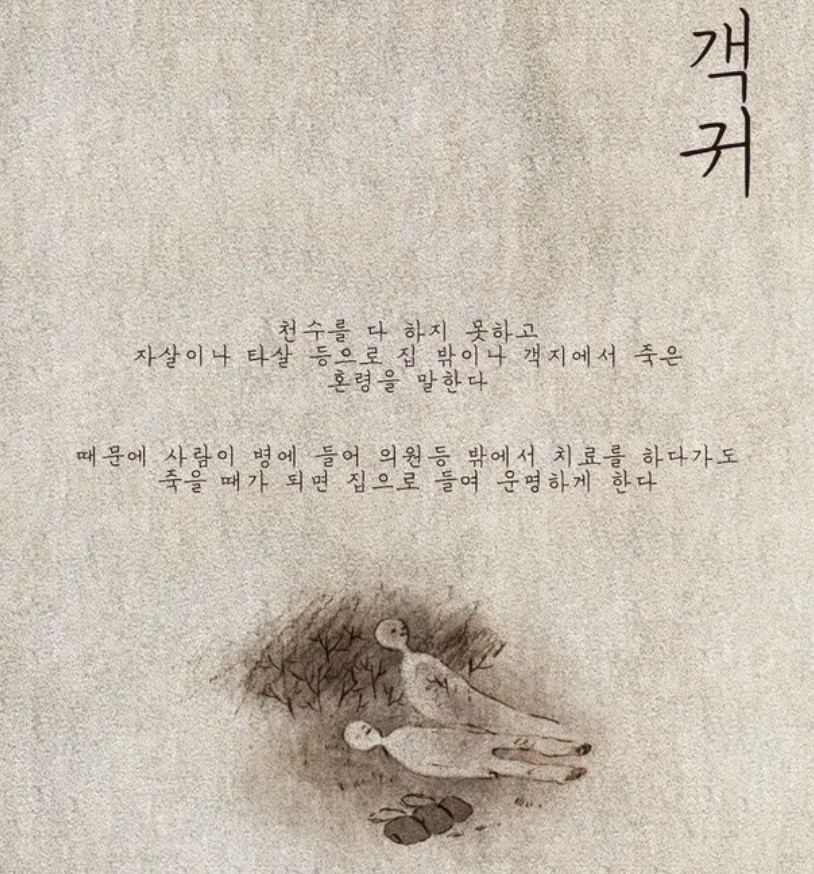 객귀
천수를 다 하지 못하고
자살이나 타살 등으로 집 밖이나 객지에서 죽은
혼령을 말한다
때문에 사람이 병에 들어 의원등 밖에서 치료를 하다가도
죽을 때가 되면 집으로 들여 운명하게 한다